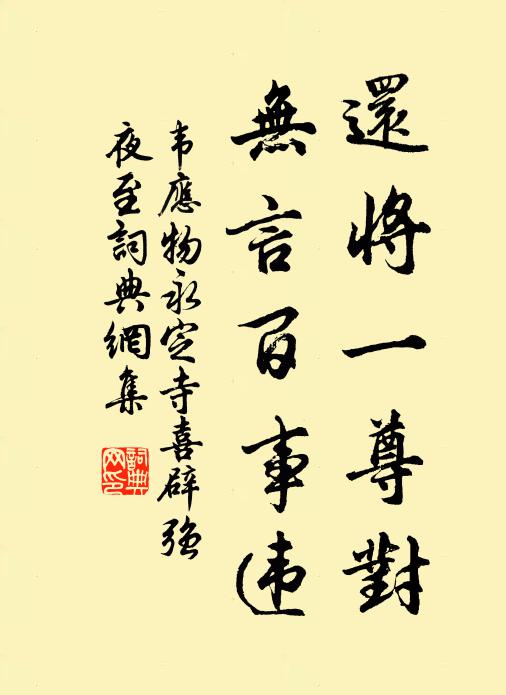 還將一尊對
無言百事违
韦應物永定寺喜辟强
夜至詞典網集
詞典
网印